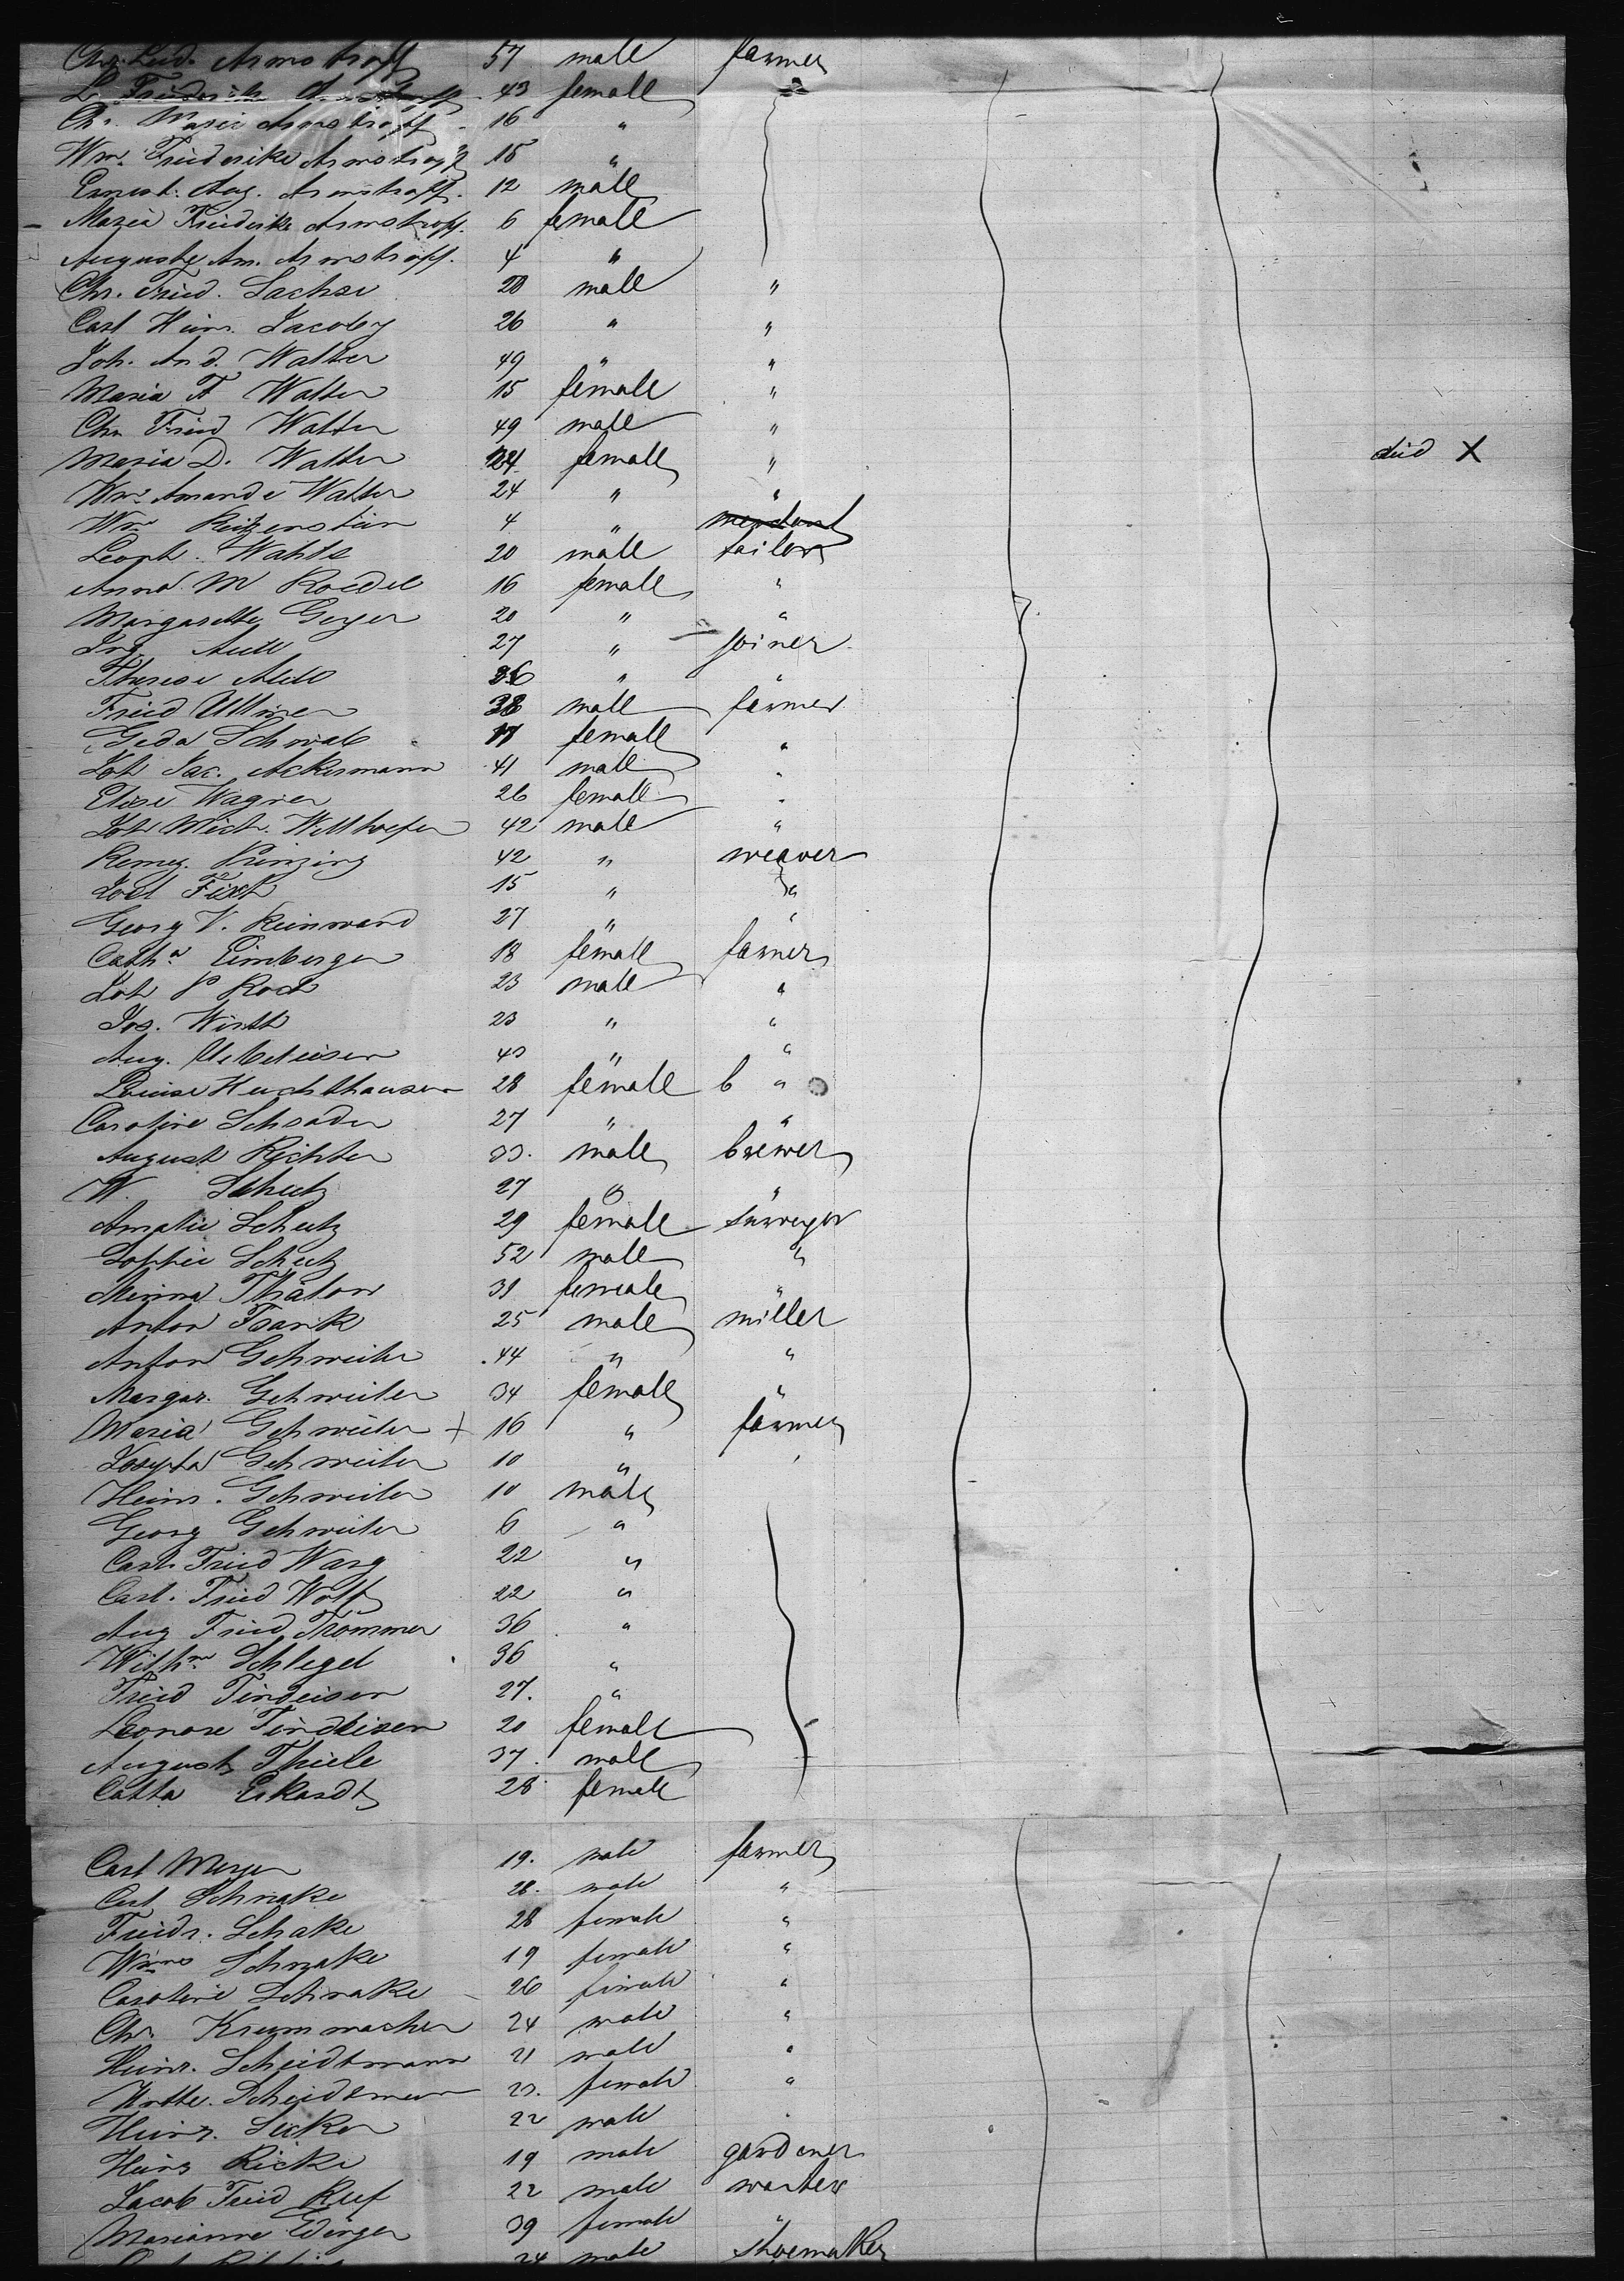 Chr. Lud. Armstroff 57 male farmer
L. Friederich 43 female "
Chr. Marie Armstroff 16 "
Wm. Friederike Armstroff 15 "
Ernest. Aug. Armstroff. 12 male
Maria Friederike Armstroff. 6 female
Auguste Am. Armstroff. 4 "
Chr. Fried. Sachse 20 male "
Carl Heinr. Jacoby 26 " "
Joh. And. Walter 49 " "
Maria F Walter 15 female "
Chr Fried Walter 49 male "
Maria D. Walter 24 female " died X
Wme Amande Walter 24 " "
Wm Reitzenstein 4 "
Leoph. Wahls 20 male tailor
Anna M Roedel 16 female "
Margarethe Geyer 20 " "
Aull 27 " joiner
Therese Aull 36 " "
Fried Ullmer 38 male farmer
Geda Schwab 17 female "
Joh Jac. Ackermann 41 male "
Elise Wagner 26 female "
Joh Mich. Wellhoefer 42 male "
Remeg. Prinzing 42 " weaver
Joel Fisch 15 " "
Georg V. Reinward 27 " "
Catha Eimberger 18 female farmer
Joh P Koch 23 male "
Jos. Wirth 23 " "
Aug. 40 " "
Louise Heuchthausen 28 female b "
Caroline Schrader 27 " "
August Richter 33. male brewer
W. Schutz 27 " "
Amalie Schutz 29 female surveyor
Sophie Schutz 52 male "
Minna Thalow 31 female "
Anton Frank 25 male miller
Anton Gehweiler 44 " "
Margar. Gehweiler 34 female "
Maria Gehweiler + 16 " farmer
Josepha Gehweiler 10 " "
Heinr. Gehweiler 10 male
Georg Gehweiler 6 "
Carl. Fried Warg 22 "
Carl. Fried Wolf 22 "
Aug Fried Trommer 36 "
Wilhm Schlegel 36 "
Fried Findeisen 27. "
Leonore Findeisen 20 female
August Thiele 37. male
Catta Eckardt 28 female
Carl Meyer 19. male farmer
Carl Schnake 28. male "
Friedr. Schake 28 female "
Wme Schnake 19 female "
Caroline Schnake 26 female "
Chr. Krummacher 24 male "
Heinr. Scheidtmann 21 male "
Scheidtmann 23. female "
Heinr. Sicker 22 male "
Heinr Ricke 19 male gardener
Jacob Fried Ruf 22 male
Marianne Edinger 39 female "
24 male shoemaker